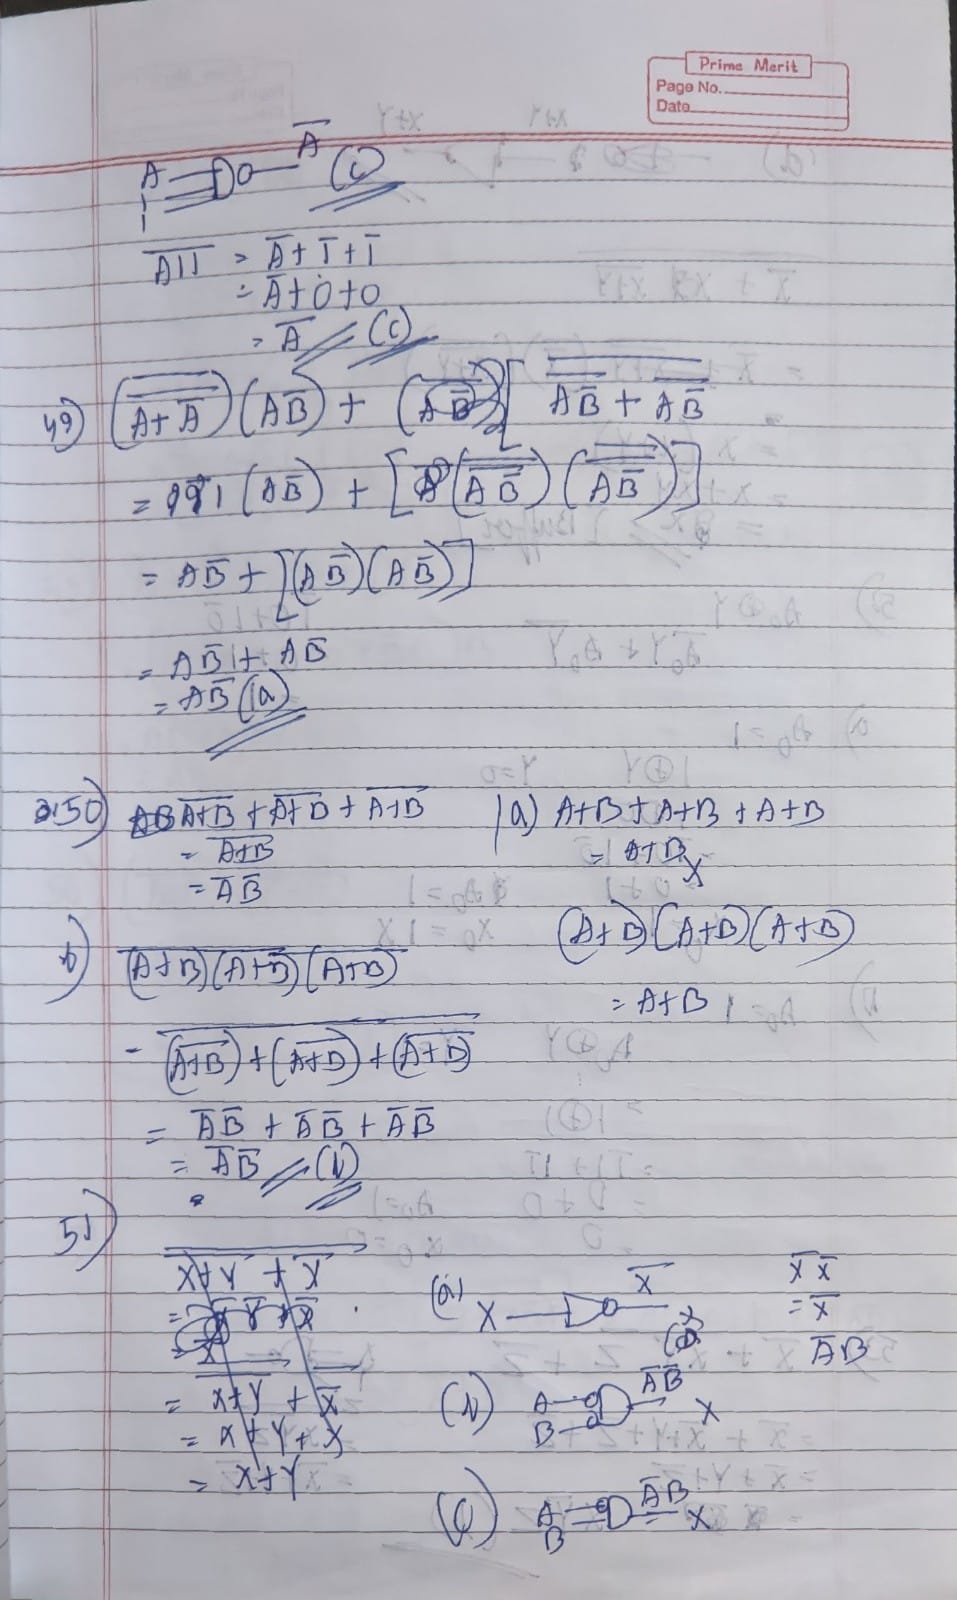 Prime Merit
Page No.
Date
A
1
1
A̅ (c)
A̅1̅1̅ = A̅ + 1̅ + 1̅
= A̅ + 0 + 0
= A̅ (c)
49) (A + A̅) (AB̅) + [AB̅ + AB̅
= 1 (AB̅) + [(AB̅) (AB̅)]
= AB̅ + [(AB̅)(AB̅)]
= AB̅ + AB̅
= AB̅ (a)
50) A̅+̅B̅ + A̅+̅B̅ + A̅+̅B̅
= A̅+̅B̅
= A̅B̅
(a) A+B + A+B + A+B
= A+B X
b) (A+B)(A+B)(A+B)
(A+B)(A+B)(A+B)
= A+B
= (A+B) + (A+B) + (A+B)
= A̅B̅ + A̅B̅ + A̅B̅
= A̅B̅ (b)
51)
X+Y + X̅
= X+Y + X̅
= X+Y+X
= X+Y
(a) X X̅
X̅ X̅
= X̅
A̅B
(b) A
B
A̅B̅ X
(c) A
B
A̅B X